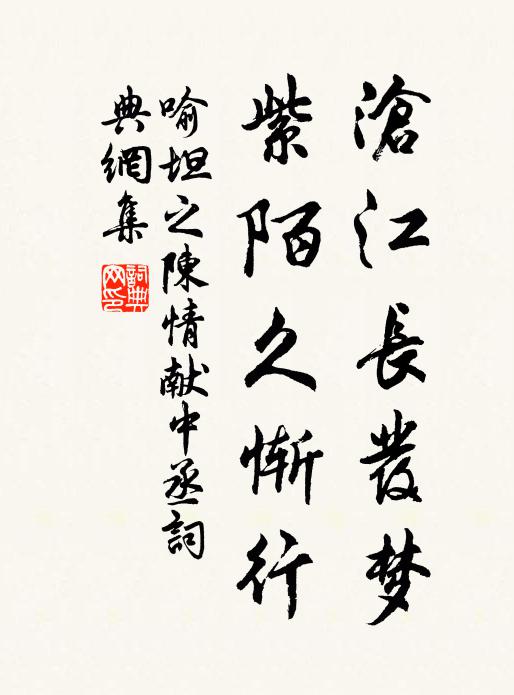 滄江長發梦
紫陌久惭行
喻坦之陳情献中丞詞
典網集
詞典
网印